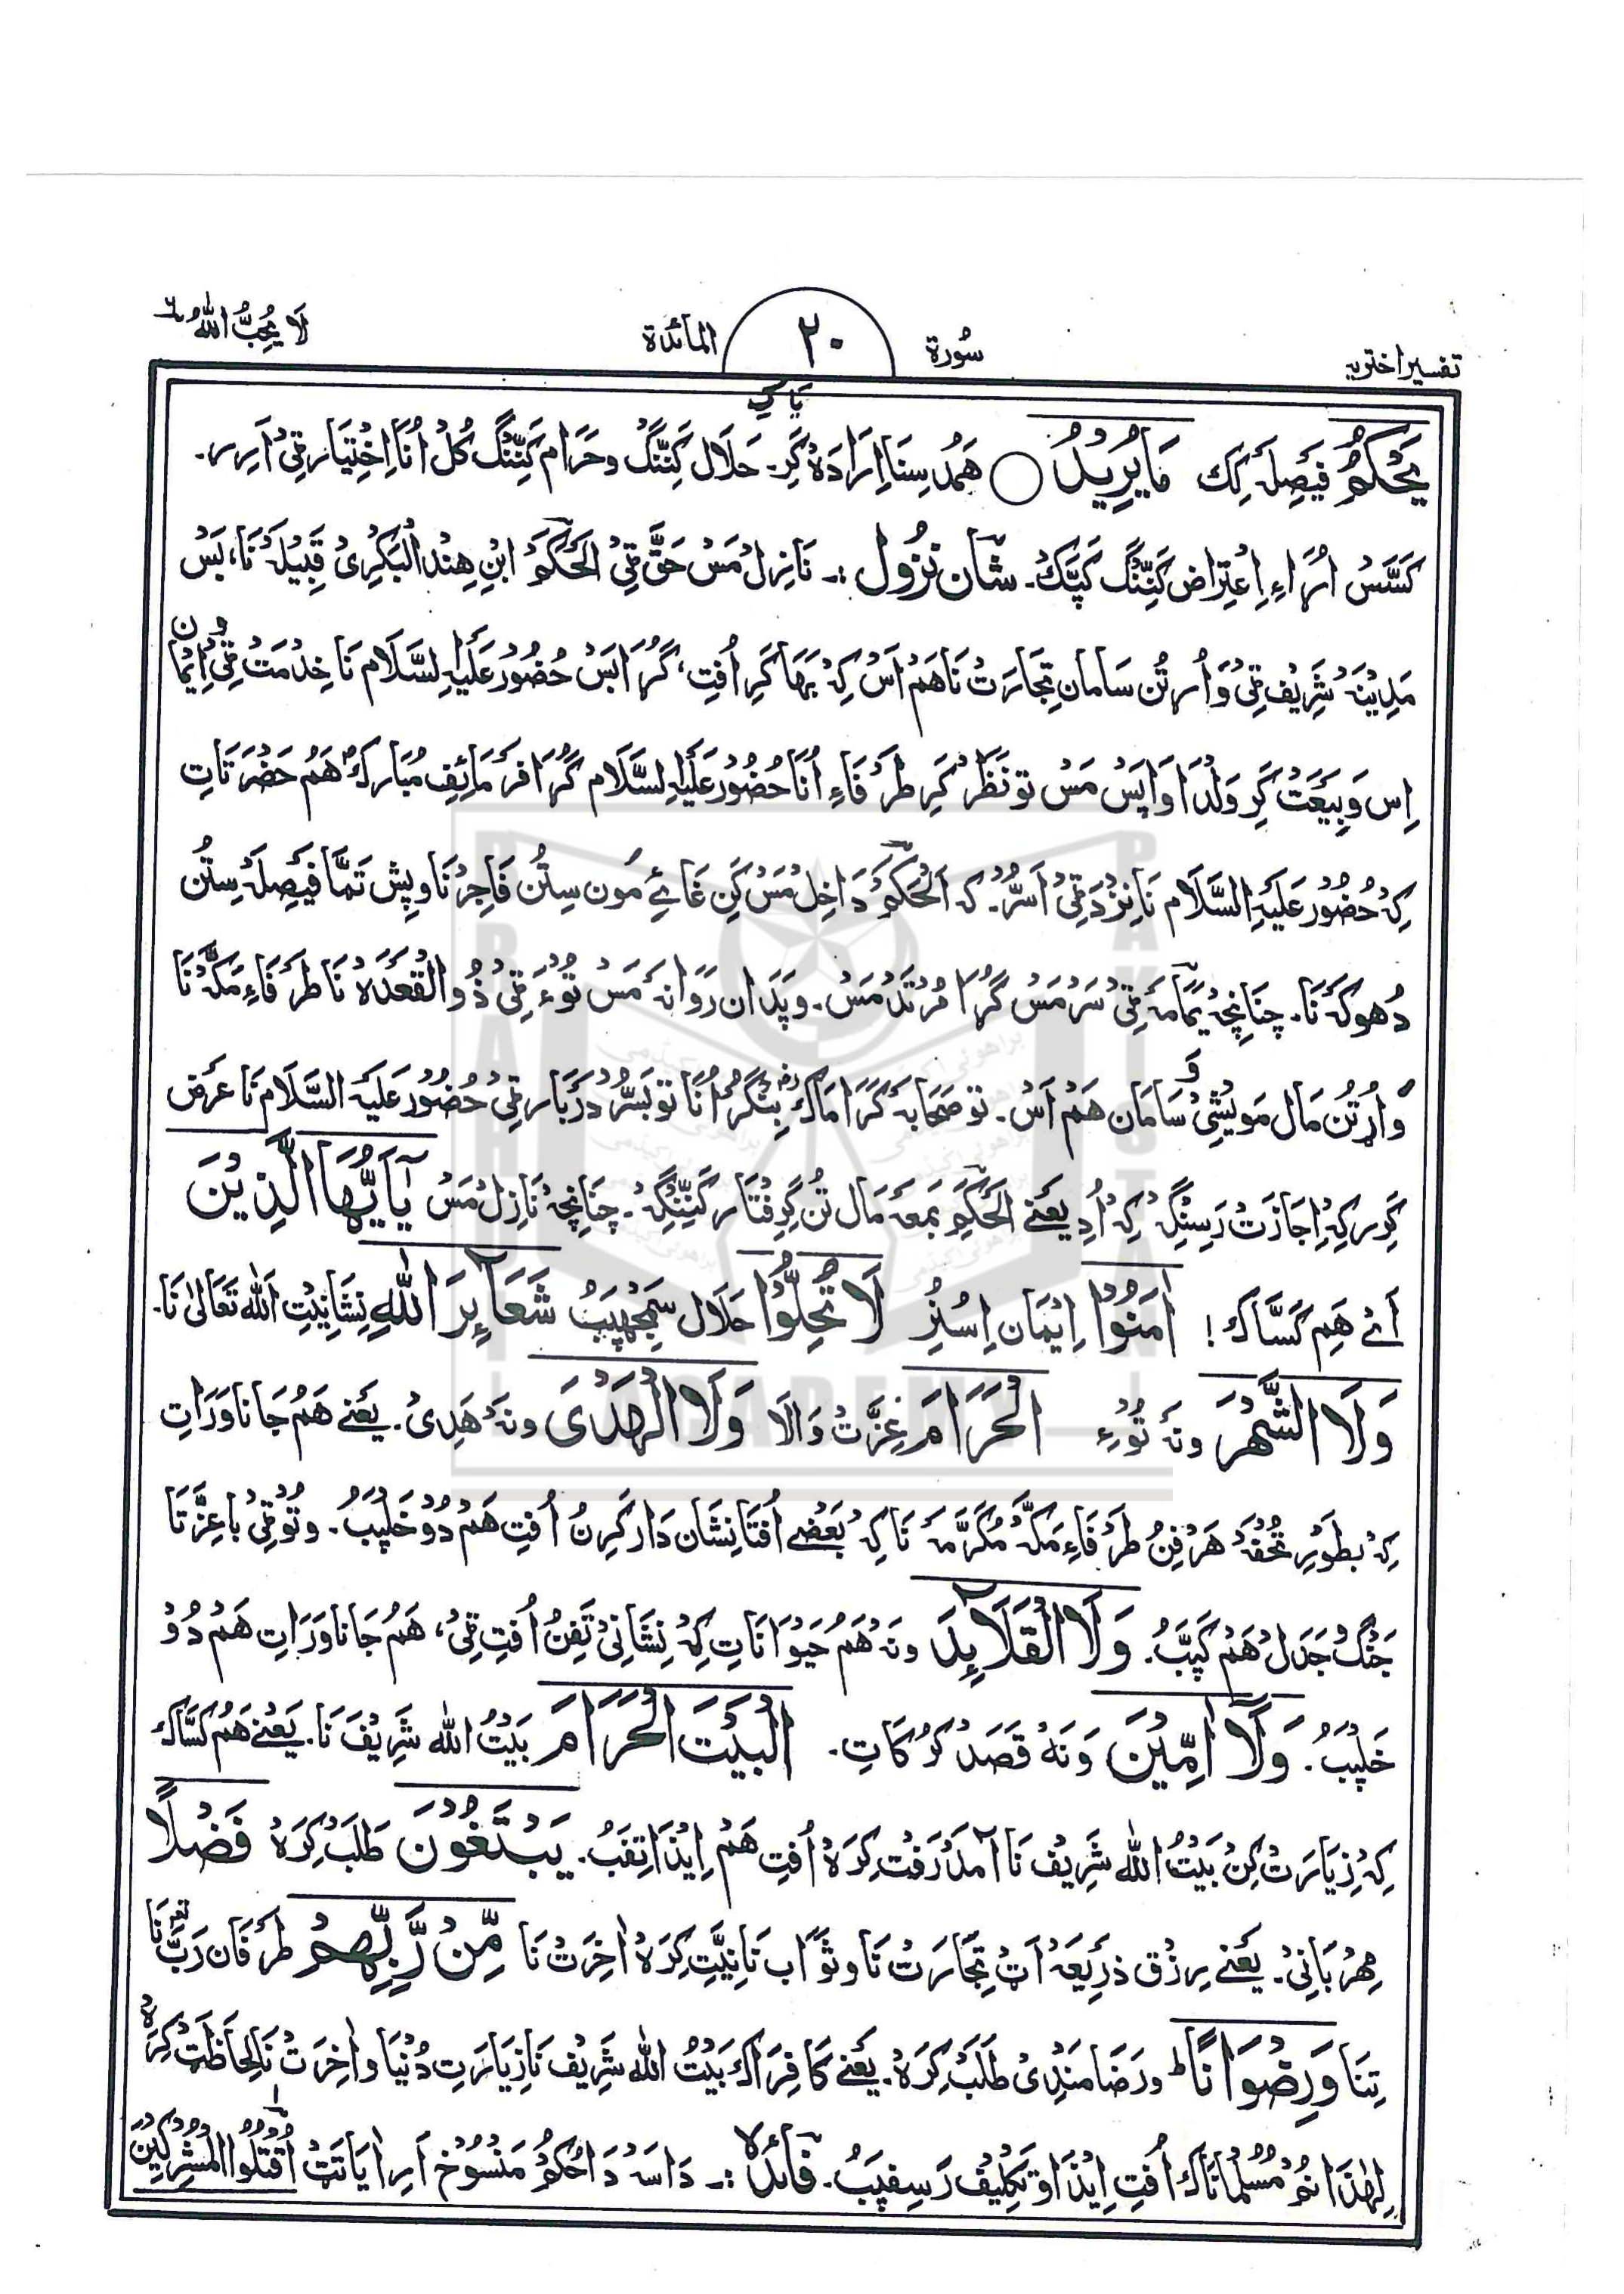 تفسیر اختریہ
سُورۃ
٢٠
المآئدۃ
لَا یُحِبُّ اللّٰہُ ٦
یَحْکُمُ فَیصِلَہ کِک مَا یُرِیْدُ ○ ھَمُد سِنَا اِرَادَہ کَرِ۔ حَلَال کَنِنْگ وحَرَام کَنِنْگ کُلْ اُنَا اِخْتِیَار ٹِیْ اَرِر۔
کَسَّسْ اُرَاءِ اِعْتِرَاض کَنِنْگ کَپَّکْ۔ شَان نزُول :۔ نَازِلْ مَسْ حَقّ ٹِیْ الْحَکَمْ ابْنِ ھِنْدُ الْبَکْرِیْ قَبِیْلَہ نَا، بَسْ
مَدِیْنَہ شَرِیْف ٹِیْ وَاُرتُن سَامَانِ تِجَارَتْ نَا ھَمْ اَسْ کِہ بَہَا کَرِ اُفتِ، گُڑَا بَسْ حُضُوْر عَلَیْہِ السَّلَام نَا خِدْمَتْ ٹِیْ اِیْمَان
اِس وَبِیْعَتْ کَرِ وَلْدَا وَاپَسْ مَسْ تو نَظَر کَرِ طَرْفَاءِ اُنَا حُضُوْر عَلَیْہِ السَّلَام گُڑَا فَرْمَائِفِ مُبَارکْ ھَمُ حَضْرَتَاتِ
کِہ حُضُوْر عَلَیْہِ السَّلَام نَا نِزْد ٹِیْ اَسُّرْ۔ کہ اَلْحَکَمْ دَاخِلْ مَسْ کَنْ غَائے مُون سِتُن فَاجِرْ نَا وپِش تَمَّا فَیصِلَہ سِتُن
دُھوکَہ نَا۔ چنَانچِہ یَمَامَہ ٹِیْ سَرْ مَسْ گُڑَا مُرْتَد مَسْ۔ وپَدَان رَوَانَہ مَسْ تُوْءَ ٹِیْ ذُوالْقَعْدَہ نَا طَرْفَاءِ مَکَّہ نَا
وَاُرتُن مَال مَویْشِیْ وَ سَامَان ھَمْ اَسْ۔ تو صَحَابَہ کِرَامَاکْ بِنْگُرْ اُنَا تو بَسُّرْ دَرْبَار ٹِیْ حُضُوْر عَلَیْہِ السَّلَام نَا عَرْض
کَرِر کِہ اِجَازَتْ رَسِنْگِہ کِہ اُدِ یَعْنے الْحَکَمْ بِمَعَہ مَال تُن گِرِفْتَار کَنِنْگِہ۔ چنَانچِہ نَازِلْ مَسْ یٰٓاَیُّہَا الَّذِیْنَ
اَئے ھَم کَسَّاکْ! اٰمَنُوْا اِیْمَان اِسُنِرْ لَا تُحِلُّوْا حَلَال سَمْجھِپَبْ شَعَآئِرَ اللّٰہِ نِشَانِیتِ اللّٰہ تَعَالیٰ نَا۔
وَلَا الشَّہْرَ ونَہ تُوْءِ الْحَرَامَ عِزَّتْ وَالَا وَلَا الْہَدْیَ ونَہ ھَدِیْ۔ یَعْنے ھَمُ جَانَاوَرَاتِ
کِہ بطَوْرِ تُحْفَہ ھَرْفِنُ طَرْفَاءِ مَکَّہ مُکَرَّمَہ نَا کِہ بَعْضے اُفْتَا نِشَان دَار کَرِنُ اُفتِ ھَمْ دُوْ خَلِپَبْ۔ وتُوْ ٹِیْ بَاعِزَّتَا
جَنْگ وجَدَلْ ھَمْ کَپَبْ۔ وَلَا الْقَلَآئِدَ ونَہ ھَمُ حَیْوَانَاتِ کِہ نِشَانِیْ تَفِنُ اُفتِ ٹِیْ، ھَمُ جَانَاوَرَاتِ ھَمْ دُوْ
خَلِپَبْ۔ وَلَآ اٰمِّیْنَ وَنَہ قَصَد کَرُکَاتِ۔ الْبَیْتَ الْحَرَامَ بَیْتُ اللّٰہ شَرِیْفَ نَا۔ یَعْنے ھَمُ کَسَّاکْ
کِہ زِیَارَتْ کِنْ بَیْتُ اللّٰہ شَرِیْف نَا آمَدْرَفْت کِرَہ اُفتِ ھَمْ اِیْذَا تِفَبْ۔ یَبْتَغُوْنَ طَلَبْ کِرَہ فَضْلًا
مِہْرْبَانِیْ۔ یَعْنے رِزْق ذَرِیْعَہ اَٹْ تِجَارَتْ نَا وثَوَاب نَا نِیَّتْ کِرَہ اٰخِرَتْ نَا مِّنْ رَّبِّہِمْ طَرْفَان رَبّ نَا
تِنَا وَرِضْوَانًا ط ورَضَامَنْدِیْ طَلَبْ کِرَہ۔ یَعْنے کَافِرَاکْ بَیْتُ اللّٰہ شَرِیْف نَا زِیَارَتِ دُنْیَا واٰخِرَتْ نَا لِحَاظَٹْ کِرَہ
لِہٰذَا نُمْ مُسُلْمَانَاکْ اُفتِ اِیْذَا وتَکْلِیْف رَسِفِپَبْ۔ فَائدہ :۔ دَاسَہ دَا حُکْمْ مَنْسُوْخ اَرِ اٰیَاتَٹْ اُقْتُلُوا الْمُشْرِکِیْنَ
BRAHUI ACADEMY PAKISTAN
براھوئی اکیڈمی